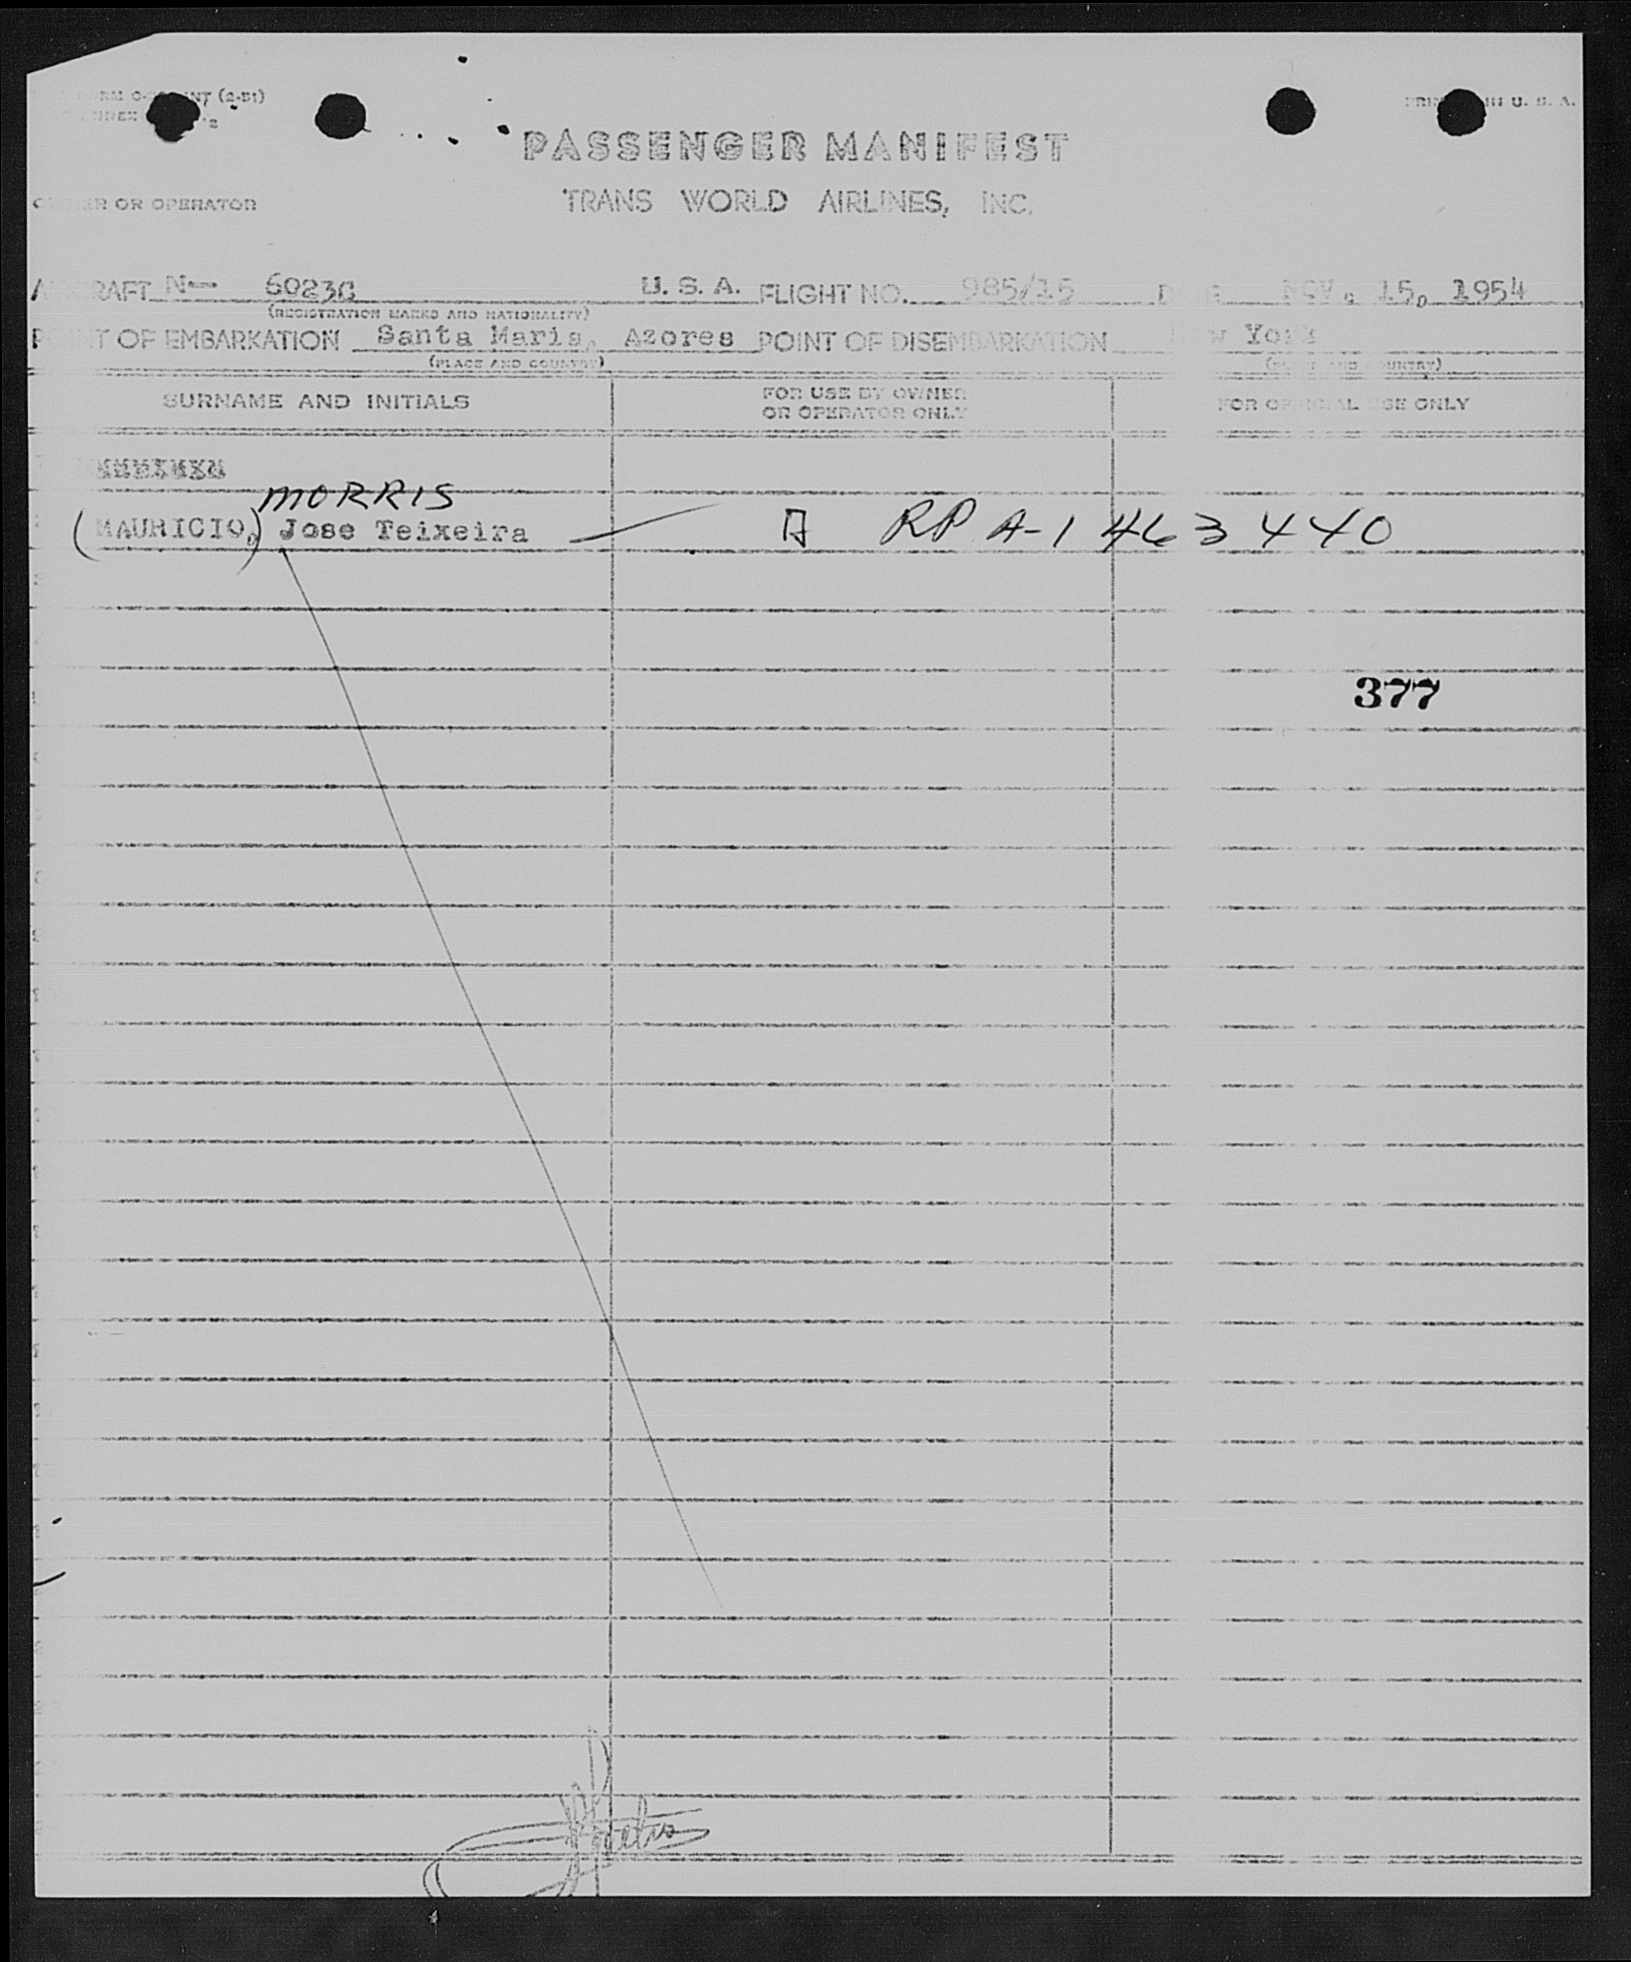 (2-51)
PRINTED IN U. S. A.
PASSENGER MANIFEST
OWNER OR OPERATOR
TRANS WORLD AIRLINES, INC.
AIRCRAFT N— 6023C U. S. A. FLIGHT NO. 985/15 DATE NOV. 15, 1954
(REGISTRATION MARKS AND NATIONALITY)
POINT OF EMBARKATION Santa Maria, Azores POINT OF DISEMBARKATION New York
(PLACE AND COUNTRY) (PLACE AND COUNTRY)
SURNAME AND INITIALS FOR USE BY OWNER OR OPERATOR ONLY FOR OFFICIAL USE ONLY
MORRIS
(MAURICIO,) Jose Teixeira A RP A-1 463 440
377